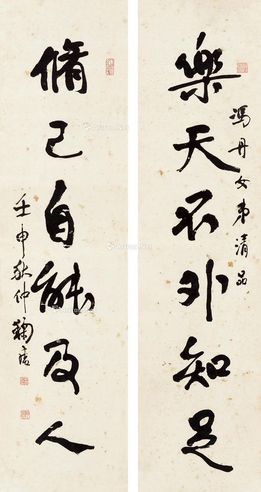 樂天不外知足
馮丹女弟清品
脩己自能及人
壬申秋仲鞠唐